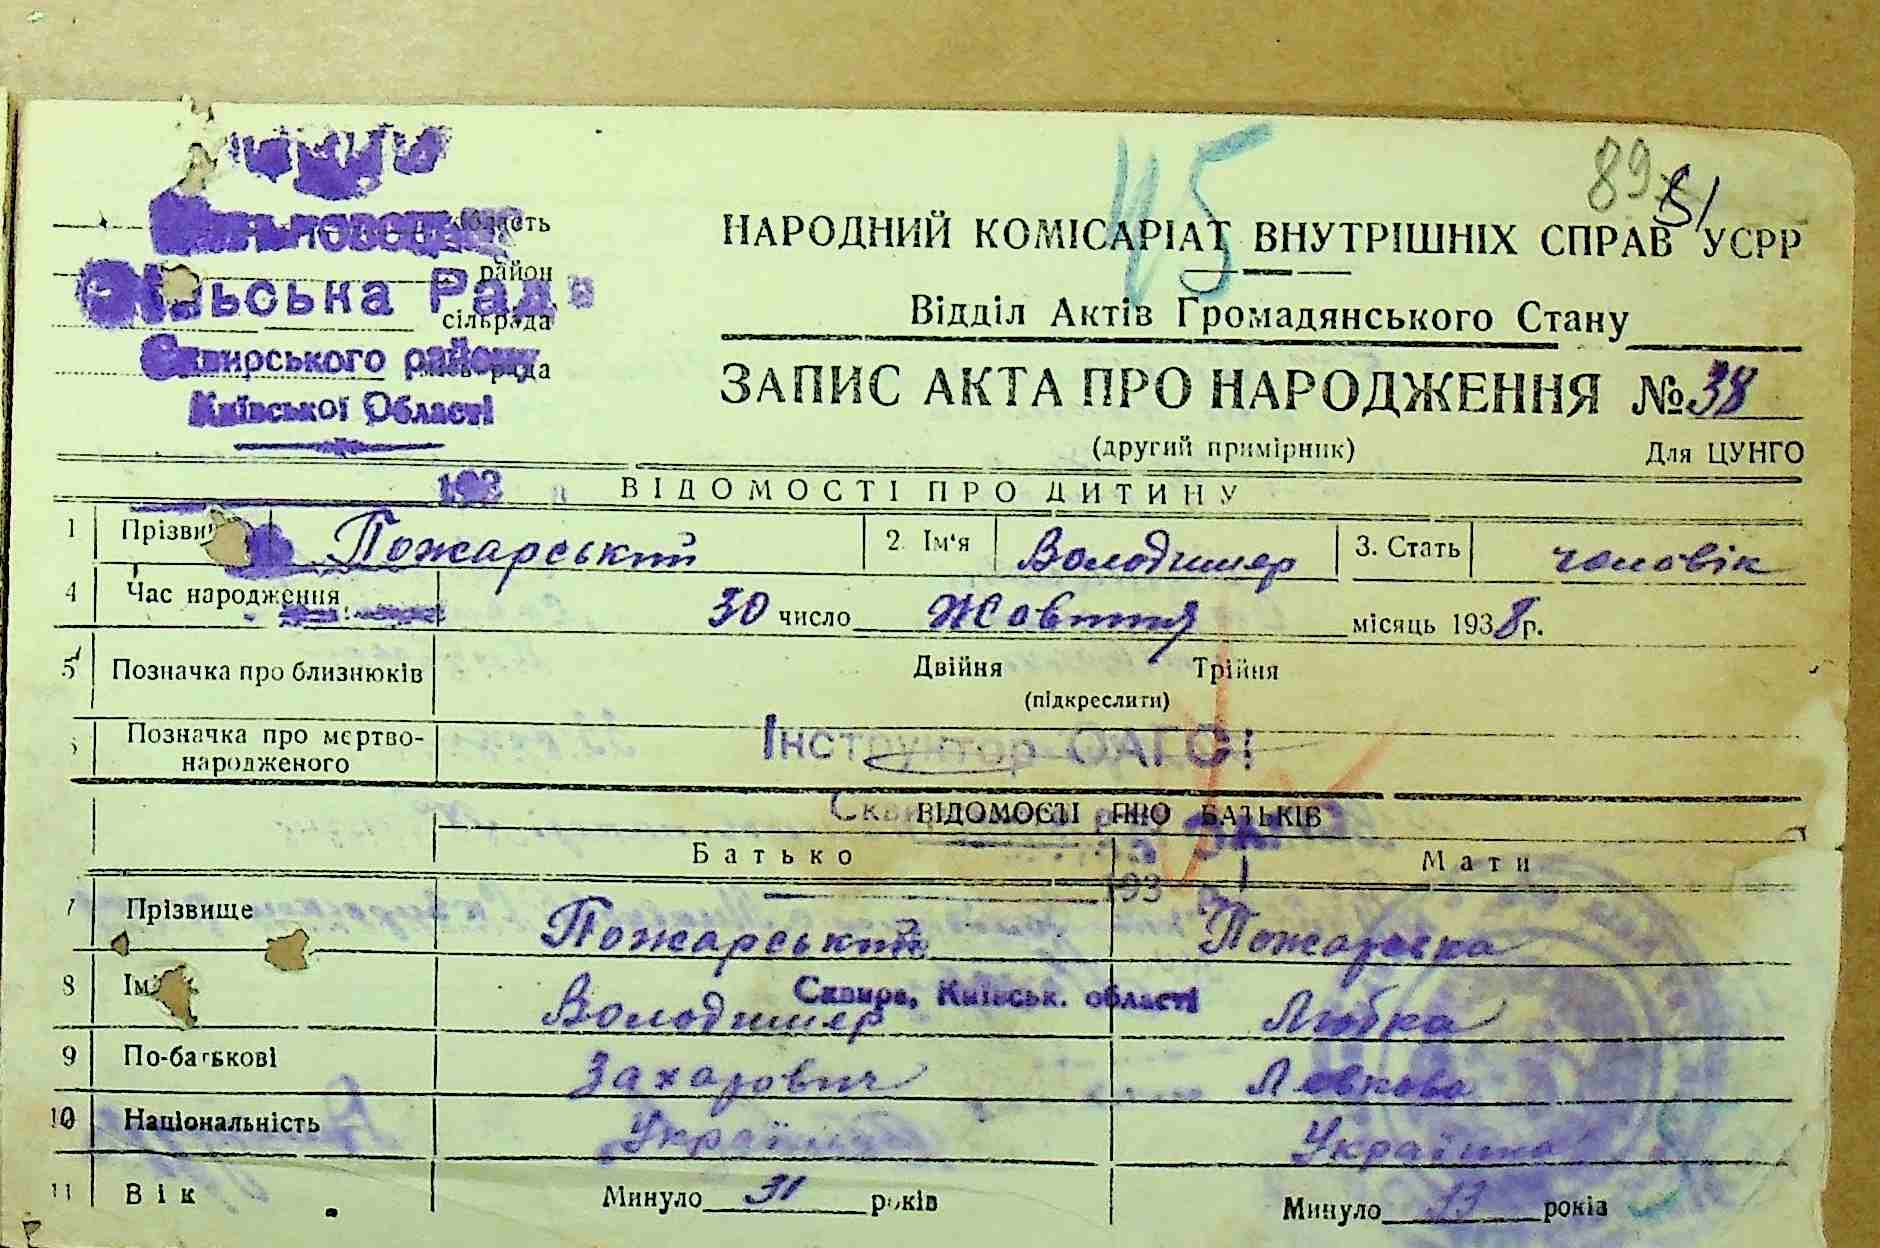 область
район
сільрада
Сільська Рада
Сквирського району
Київської Області
45
89
51
НАРОДНИЙ КОМІСАРІАТ ВНУТРІШНІХ СПРАВ УСРР
Відділ Актів Громадянського Стану
ЗАПИС АКТА ПРО НАРОДЖЕННЯ № 38
(другий примірник) Для ЦУНГО
193
ВІДОМОСТІ ПРО ДИТИНУ
1 Прізви Пожарський 2. Ім'я Володимер 3. Стать чоловік
4 Час народження 30 число Жовтня місяць 1938 р.
5 Позначка про близнюків Двійня Трійня
(підкреслити)
Позначка про мертво-
народженого
Інструктор ОАГС
ВІДОМОСТІ ПРО БАТЬКІВ
Батько Мати
193
7 Прізвище Пожарський Пожарська
Сквира, Київськ. області
8 Ім Володимер Любка
9 По-батькові Захарович Левкова
10 Національність Українець Українка
11 Вік Минуло 31 років Минуло років